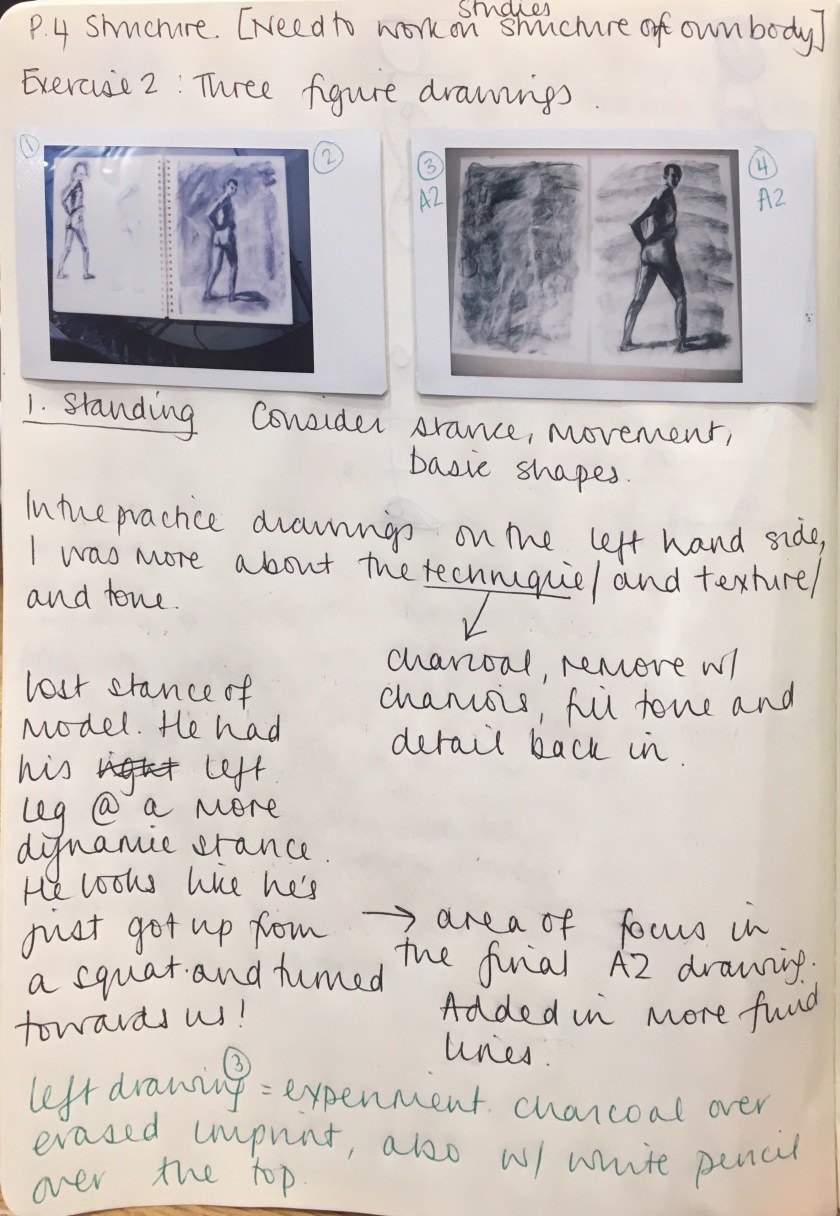 studies
P.4 Structure. [Need to work on structure of own body]
Exercise 2 : Three figure drawings.
1
2
3
A2
4
A2
1. Standing Consider stance, movement,
basic shapes.
In the practice drawings on the left hand side,
I was more about the technique/ and texture/
and tone.
charcoal, remove w/
chamois, fill tone and
detail back in.
Lost stance of
model. He had
his right left
leg @ a more
dynamic stance.
He looks like he's
just got up from
a squat and turned
towards us!
→ area of focus in
the final A2 drawing.
Added in more fluid
lines.
3
left drawing = experiment. charcoal over
erased imprint, also w/ white pencil
over the top.